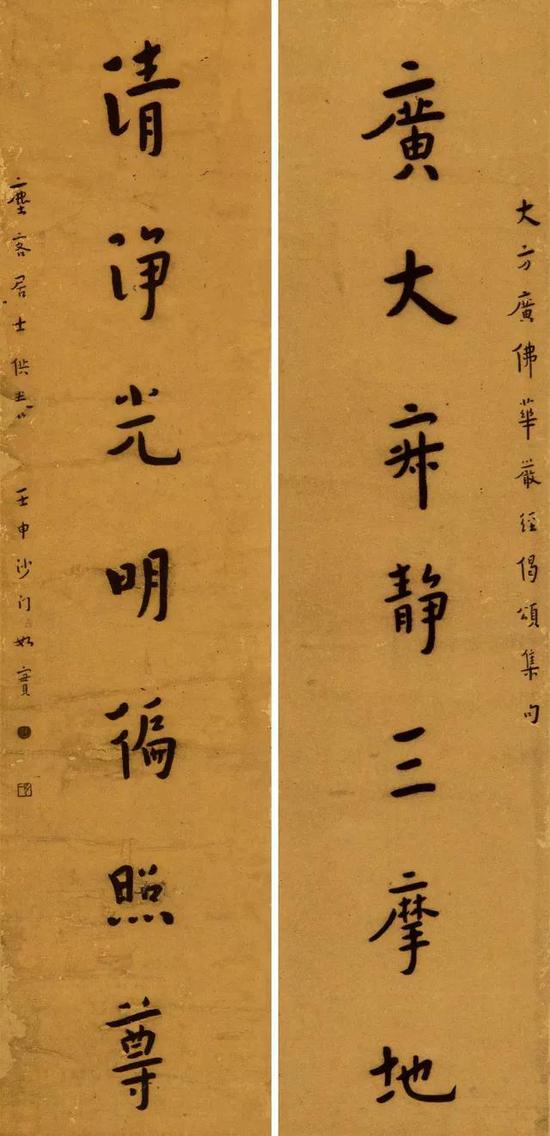 大方廣佛華嚴經偈頌集句
廣大寂静三摩地
清净光明徧照尊
塵客居士供养 壬申沙门如實